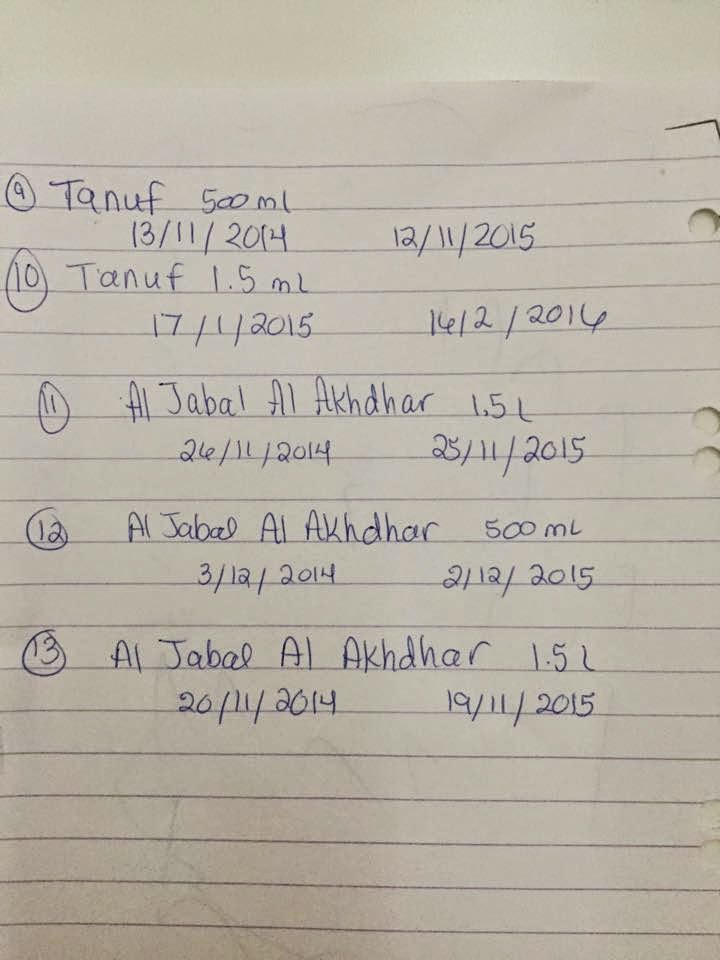 9 Tanuf 500ml
13/11/2014 12/11/2015
10 Tanuf 1.5 mL
17/1/2015 16/2/2016
11 Al Jabal Al Akhdhar 1.5L
26/11/2014 25/11/2015
12 Al Jabal Al Akhdhar 500 mL
3/12/2014 2/12/2015
13 Al Jabal Al Akhdhar 1.5 L
20/11/2014 19/11/2015